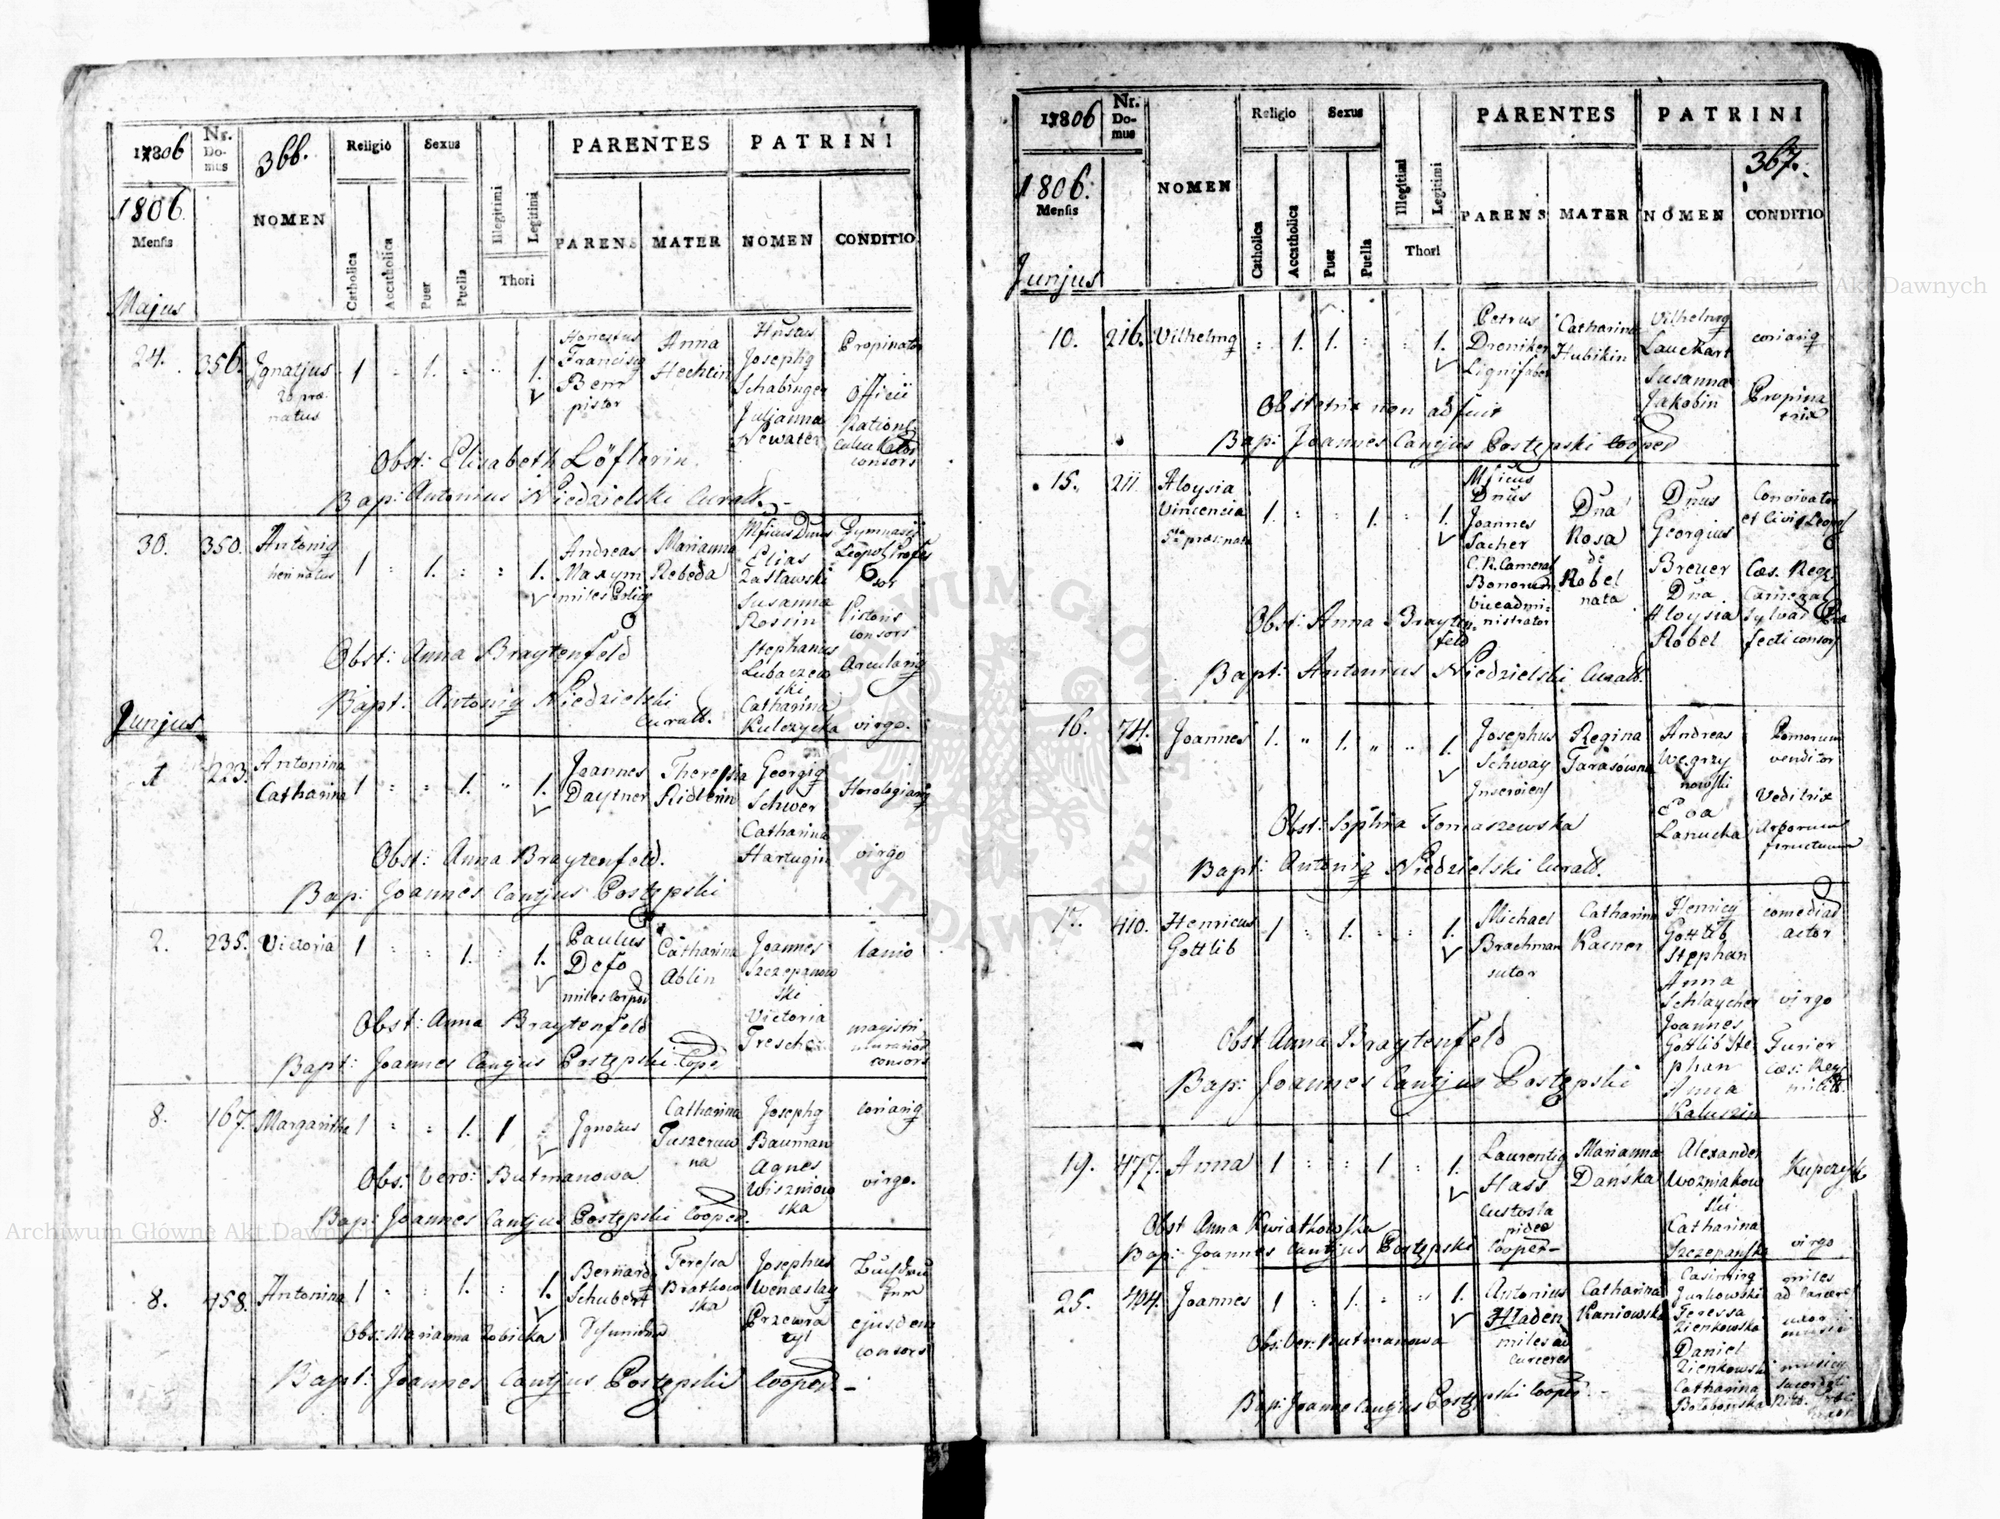 1806
Nr. Domus
366.
Religio
Sexus
PARENTES
PATRINI
1806.
Mensis
NOMEN
Catholica
Accatholica
Puer
Puella
Illegitimi
Legitimi
Thori
PARENS
MATER
NOMEN
CONDITIO
Majus
24. 356. Ignatjus natus 1 : 1. : : 1.
Honestus Francisq Bem pistor
Anna Hechtin
Josephq Schabinger Juljanna Newater
Propinator officii consors
Obst: Elisabeth Löflerin.
Bap: Antonius Niedzielski Curatt.
30. 350. Antoniq heri natus 1 : 1. : : 1.
Andreas Maxym miles
Marianna Rebeda
Mficus Dnus Elias Zasławski Susanna Rossin Stephanus Lubaczewski Catharina Kulczycka
Gymnasii Leopol: Profesor Pistoris consors Arculariq virgo.
Obst: Anna Braytenfeld
Bapt: Antoniq Niedzielski Curatt.
Junjus
1 223. Antonina Catharina 1 : : 1. " 1.
Joannes Daytner
Theressia Ridlerin
Georgiq Schwer Catharina Hartugin
Horologiariq virgo
Obst: Anna Braytenfeld.
Bap: Joannes Cantjus Postępski
2. 235. Victoria 1 : : 1. : 1.
Paulus Defo miles
Catharina Ablin
Joannes Szczepanowski Victoria
lanio magistri consors
Obst: Anna Braytenfeld
Bapt: Joannes Cantjus Postępski Coope
8. 167. Margaritha 1 : : 1. 1 :
Ignotus
Catharina
Josephq Bauman Agnes Wiszniowska
Coriariq virgo.
Obs: Vero: Butmanowa
Bap: Joannes Cantjus Postępski Cooper.
8. 458. Antonina 1 : : 1. : 1.
Bernardq Schubert
Teressa Bratkowska
Josephus Wenceslaq
ejusdem consors
Obs: Marianna Zobicka
Bapt: Joannes Cantjus Postępski Cooper
1806
Nr. Domus
Religio
Sexus
PARENTES
PATRINI
1806.
Mensis
NOMEN
367.
Catholica
Accatholica
Puer
Puella
Illegitimi
Legitimi
Thori
PARENS
MATER
NOMEN
CONDITIO
Junjus
10. 216. Vilhelmq : 1. 1. : : 1.
Petrus Dreniker Lignifaber
Catharina Hubikin
Vilhelmq Lauchart Susanna Jakobin
coriariq Propinatrix
Obstetrix non adfuit
Bap: Joannes Cantjus Postępski Cooper
15. 211. Aloysia Vincencia 1. : : 1. : 1.
Mficus Dnus Joannes Sacher C.R. Cameral Bonorum viceadministrator
Dna Rosa de Robel nata
Dnus Georgius Breuer Dna Aloysia Robel
Convivator et Civis Leopol Cæs. Reg. Cameral Sylvar Præfecti consors
Obst: Anna Braytenfeld
Bapt: Antonius Niedzielski Curatt.
16. 74. Joannes 1. " 1. " " 1.
Josephus Schway Inserviens
Regina Tarasówna
Andreas Węgrzynowski Eva Lanucha
Pomorum venditor Veditrix Arborum fructuum
Obst: Sophia Tomaszewska
Bapt: Antoniq Niedzielski Curatt.
17. 410. Henricus Gottlib 1 : 1. : : 1.
Michael Brachman sutor
Catharina Karner
Henricq Gottlib Stephan Anna Schlaycher Joannes Gottlib Stephan Anna Kaluszin
comediae actor virgo Furier Cæs: Reg: milit.
Obst Anna Braytenfeld
Bap: Joannes Cantjus Postępski
19. 477. Anna 1 : : 1 : 1.
Laurentiq Hass
Marianna Dańska
Alexander Wozniakowski Catharina Szczepańska
Kupczyk virgo
Obst Anna Kwiatkowska
Bap: Joannes Cantjus Postępski Cooper
25. 404. Joannes 1 : 1. : " 1.
Antonius Hładen miles ad carceres
Catharina Kaniowska
Casimirq Jurkowski Teressa Zienkowska Daniel Zienkowski Catharina Bołobowska
miles ad carcere uxor musici musicq
Obs: Ver: Butmanowa
Bap: Joanne Cantjus Postępski Cooper
Archiwum Główne Akt Dawnych
Archiwum Główne Akt Dawnych
ARCHIWUM GŁÓWNE AKT DAWNYCH